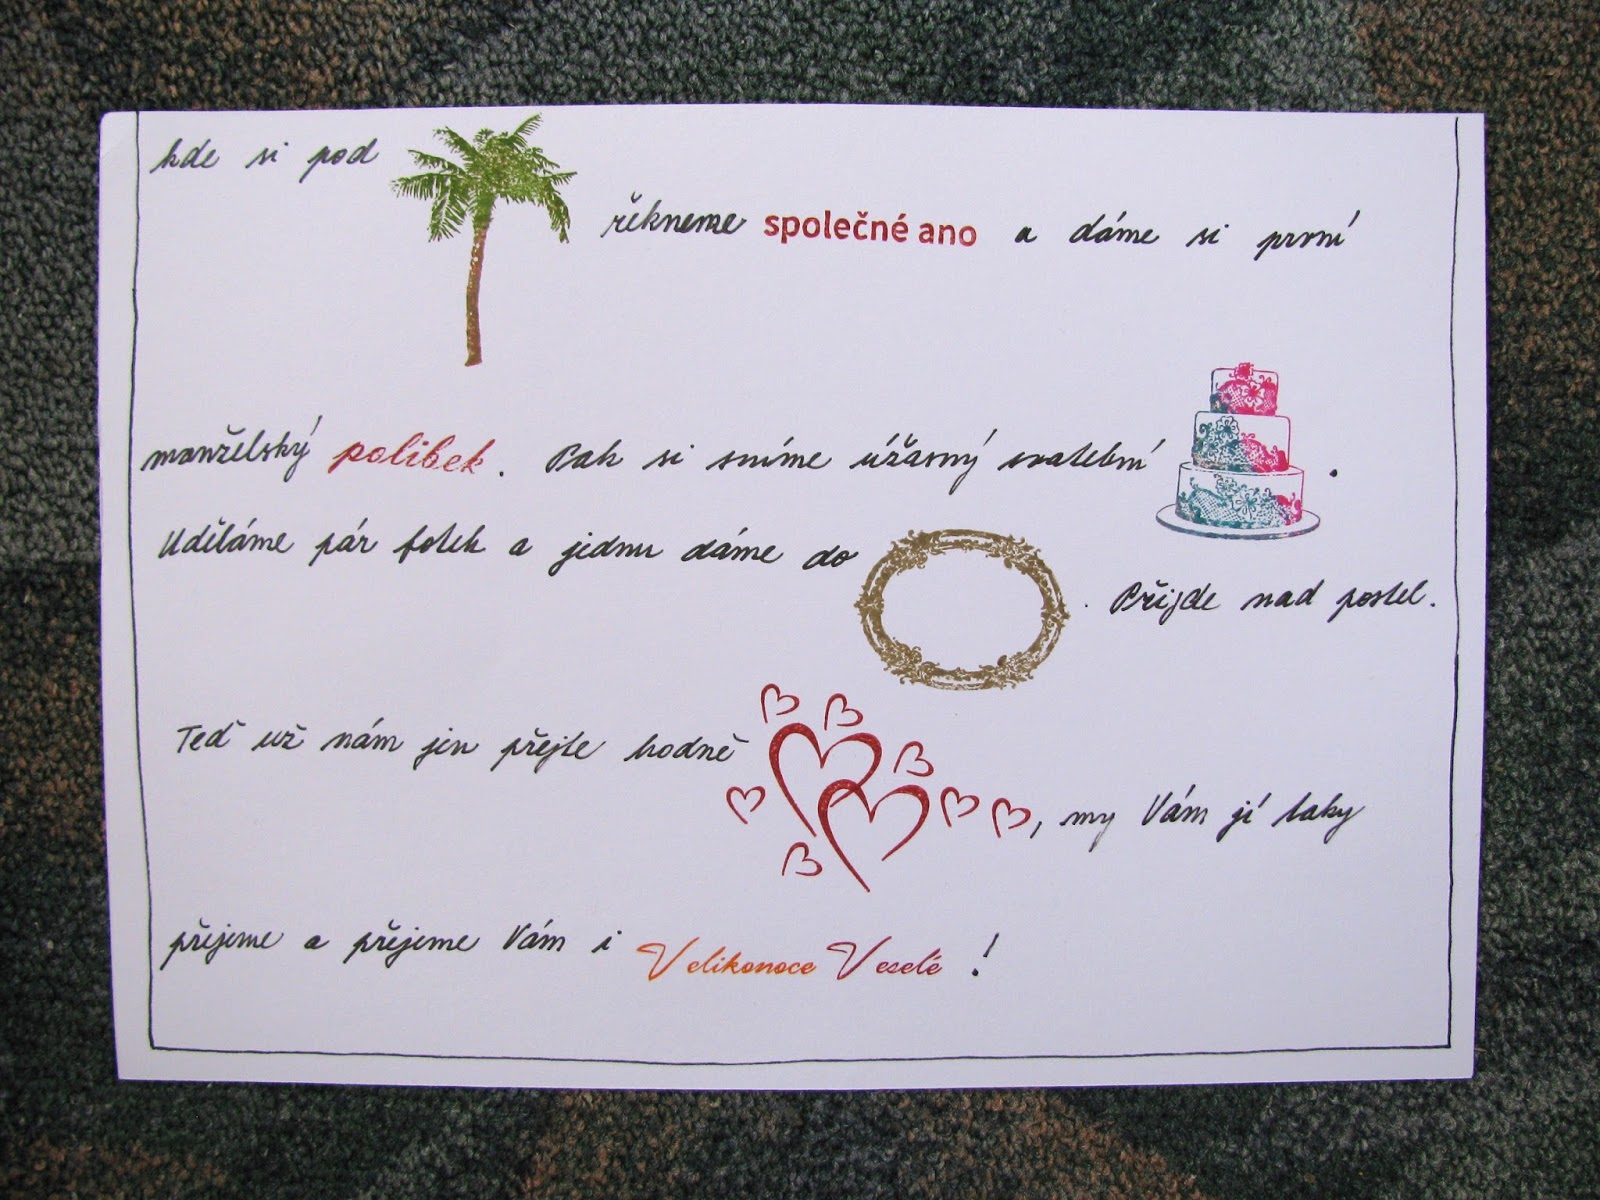 kde si pod
řekneme společné ano a dáme si první
manželský polibek. Pak si sníme úžasný svatební .
Uděláme pár fotek a jednu dáme do . Přijde nad postel.
Teď už nám jen přejte hodně , my Vám jí taky
přejeme a přejeme Vám i Velikonoce Veselé !